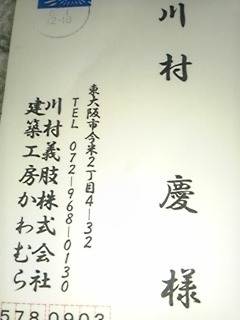 川村 慶 様
東大阪市今米2丁目4-32
TEL 072-968-0130
川村義肢株式会社
建築工房かわむら
578 0903